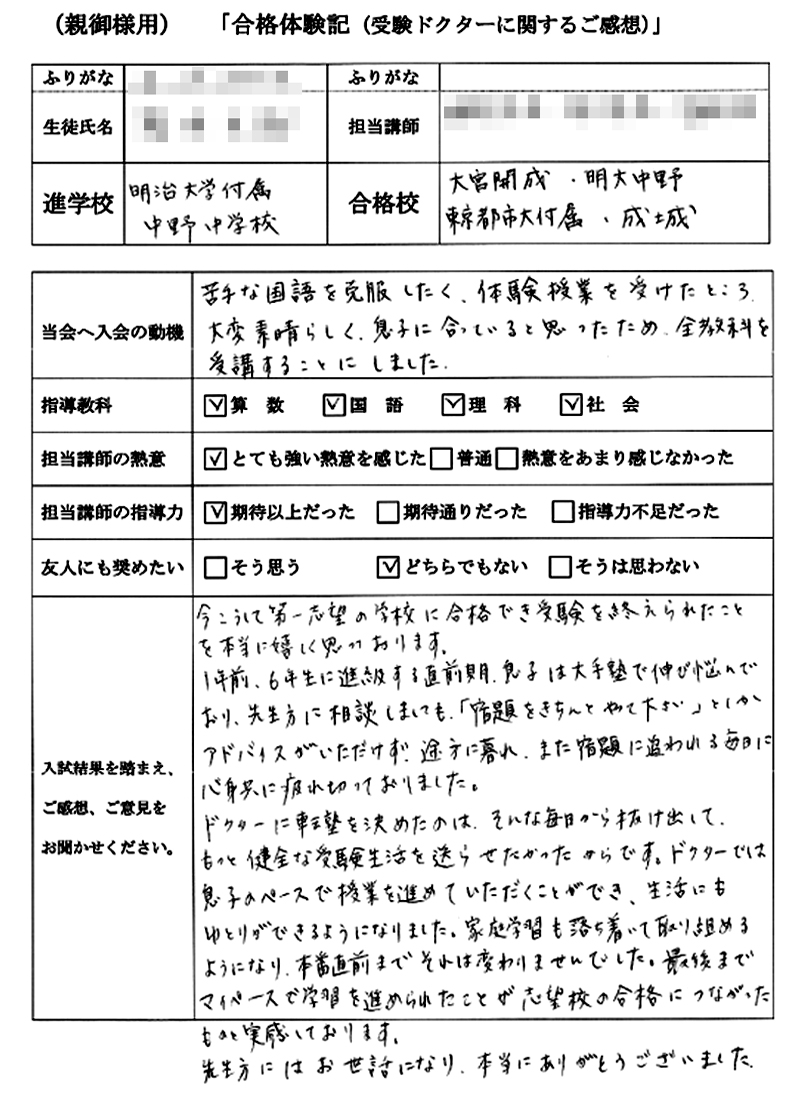 （親御様用）　「合格体験記（受験ドクターに関するご感想）」
ふりがな　ふりがな
生徒氏名　担当講師
進学校　明治大学付属　合格校　大宮開成・明大中野
中野中学校　東京都市大付属・成城
当会へ入会の動機　苦手な国語を克服したく、体験授業を受けたところ、
大変素晴らしく、息子に合っていると思ったため、全教科を
受講することにしました。
指導教科　☑算　数　☑国　語　☑理　科　☑社　会
担当講師の熱意　☑とても強い熱意を感じた□普通□熱意をあまり感じなかった
担当講師の指導力　☑期待以上だった　□期待通りだった　□指導力不足だった
友人にも奨めたい　□そう思う　☑どちらでもない　□そうは思わない
入試結果を踏まえ、
ご感想、ご意見を
お聞かせください。
今こうして第一志望の学校に合格でき受験を終えられたこと
を本当に嬉しく思っております。
1年前、6年生に進級する直前期、息子は大手塾で伸び悩んで
おり、先生方に相談しましても、「宿題をきちんとやって下さい」としか
アドバイスがいただけず、途方に暮れ、また宿題に追われる毎日に
心身共に疲れ切っておりました。
ドクターに転塾を決めたのは、そんな毎日から抜け出して、
もっと健全な受験生活を送らせたかったからです。ドクターでは
息子のペースで授業を進めていただくことができ、生活にも
ゆとりができるようになりました。家庭学習も落ち着いて取り組める
ようになり、本番直前までそれは変わりませんでした。最後まで
マイペースで学習を進められたことが志望校の合格につながった
ものと実感しております。
先生方にはお世話になり、本当にありがとうございました。